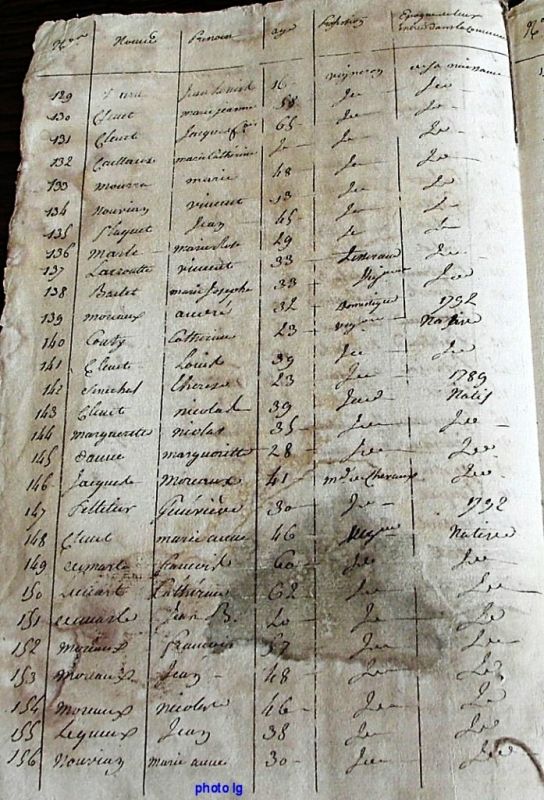 Nos Noms Prenoms age Profession Epoque de leur entrée dans la Commune
129 Jean Louis 16 vigneron de sa naissance
130 Clouet marie jeanne 58 Id Id
131 Clouet Jacque 65 Id Id
132 Caillaux marie Catherine Id Id
133 mourra marie 48 Id Id
134 Nouvian vincent 13 Id Id
135 Paquet Jean 45 Id Id
136 marle marie Rose 29 Id Id
137 Lacroutte vincent 33
138 Barlet marie Josephe 33 Vigneron Id
139 moreaux andré 32 Domestique 1792
140 Couty Catherine 23 vigneron Native
141 Clouet Louis 39 Id Id
142 Senechal Therese 23 Id 1789
143 Clouet nicolas 39 Id Natif
144 marguerite nicolas 35 Id Id
145 marguerite 28 Id Id
146 Jacques Moreaux 41 md de chevaux Id
147 Pelletier 30 Id 1792
148 Clouet marie anne 46 Native
149 francois 60 Id Id
150 Catherine 62 Id Id
151 Jean B. 20 Id Id
152 moreaux francois 57 Id Id
153 Moreaux Jean 48 Id Id
154 Moreaux nicolas 46 Id Id
155 Lequeux Jean 38 Id Id
156 Nouvian marie anne 30 Id Id
photo lg